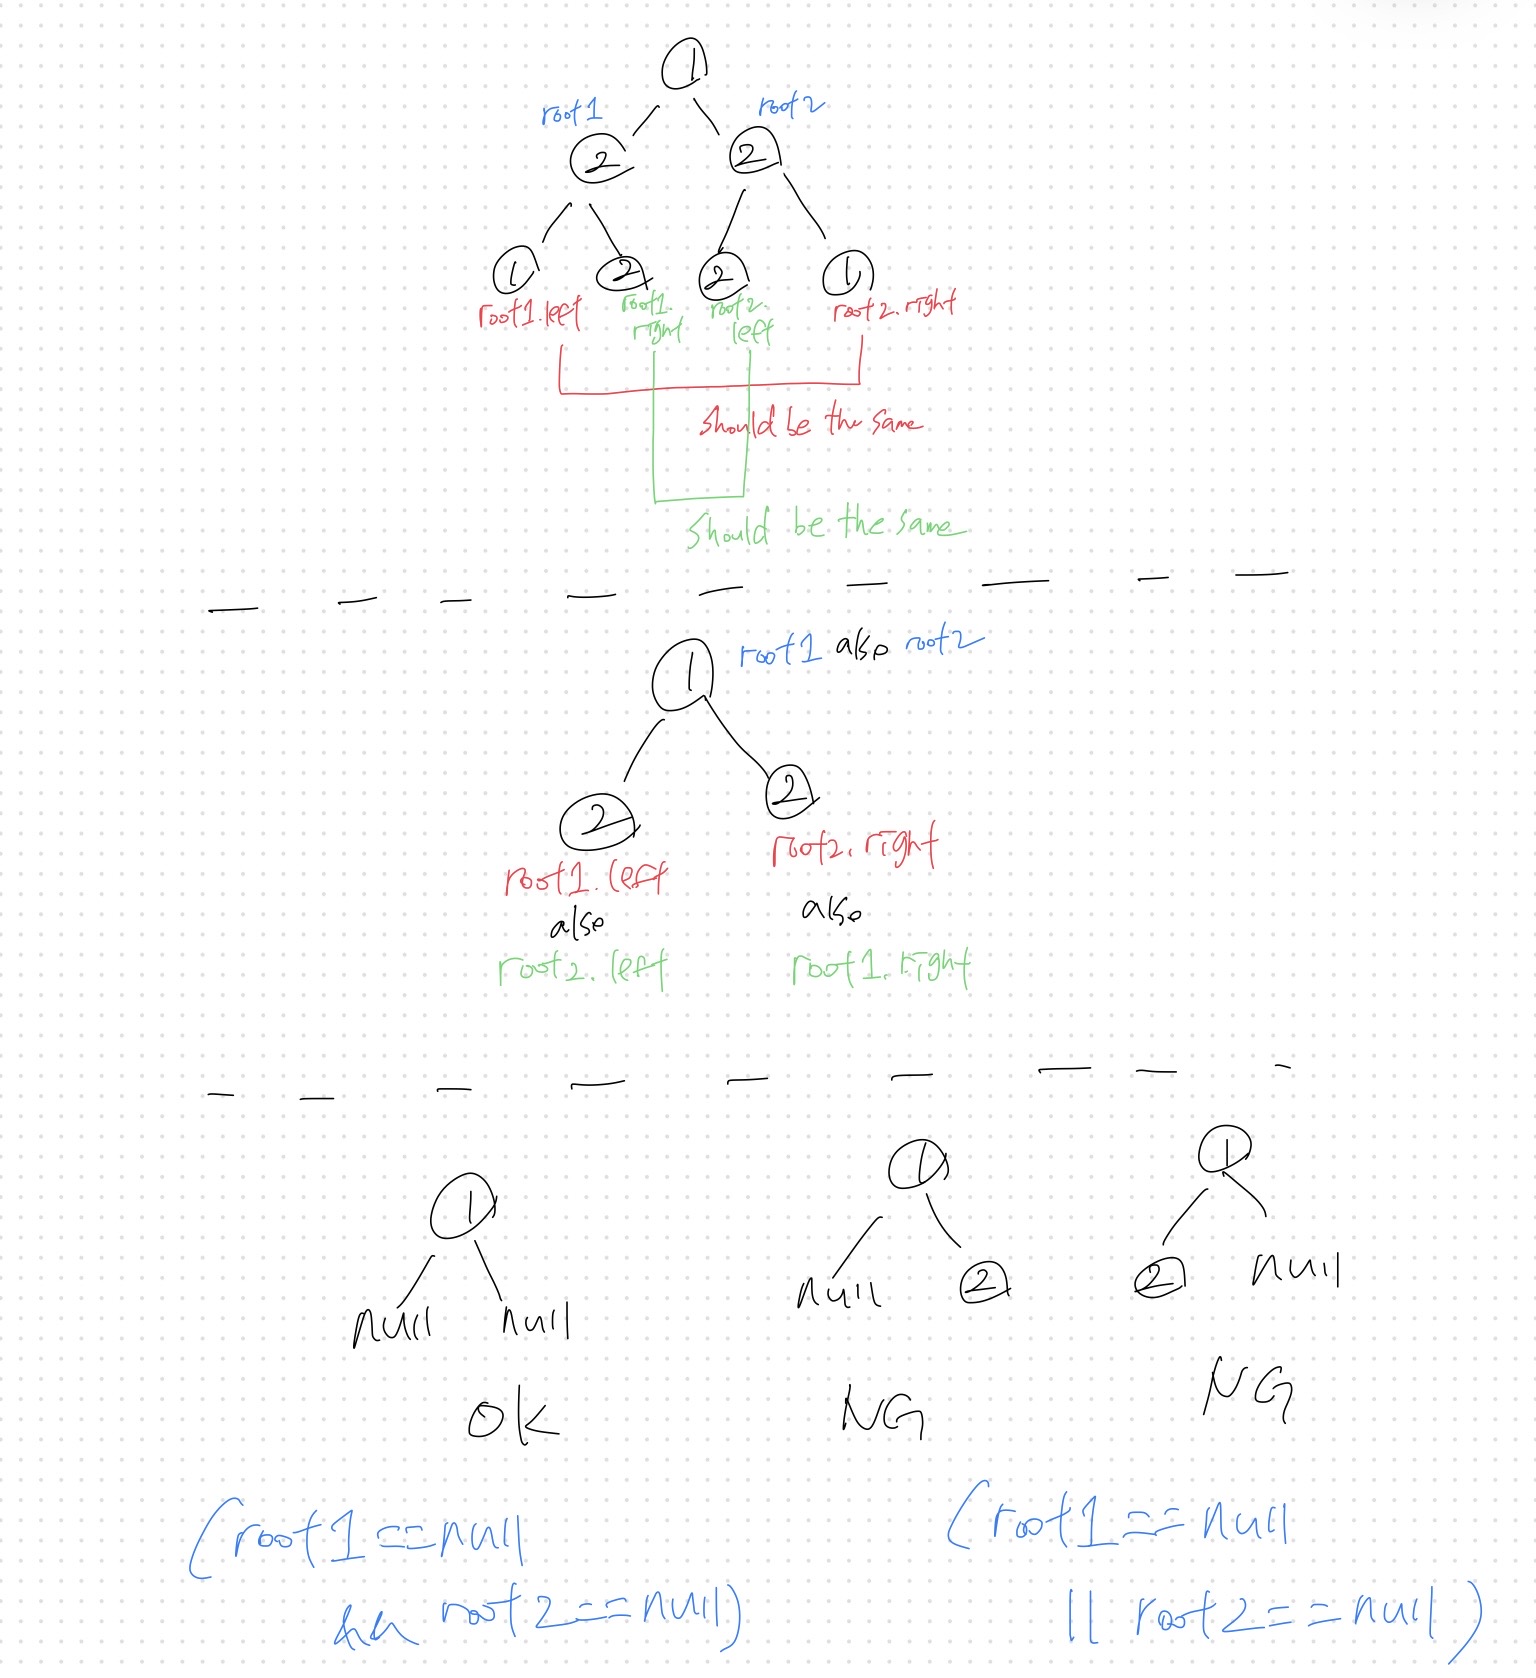 1
root1
root2
2
2
1
2
2
1
root1.left
root1.
right
root2.
left
root2.right
should be the same
should be the same
1
root1 also root2
2
2
root1.left
also
root2.left
root2.right
also
root1.right
1
null
null
OK
1
null
2
NG
1
2
null
NG
(root1==null
&& root2==null)
(root1==null
|| root2==null)